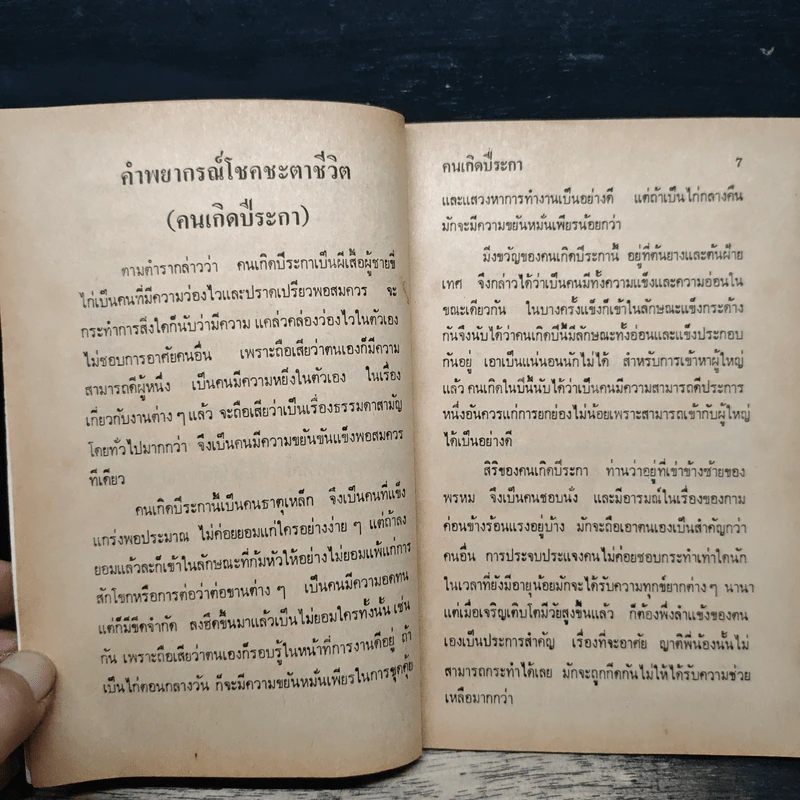 คำพยากรณ์โชคชะตาชีวิต
(คนเกิดปีระกา)
ตามตำรากล่าวว่า คนเกิดปีระกาเป็นผีเสื้อผู้ชายขี่
ไก่เป็นคนที่มีความว่องไวและปราดเปรียวพอสมควร จะ
กระทำการสิ่งใดก็นับว่ามีความ แคล่วคล่องว่องไวในตัวเอง
ไม่ชอบการอาศัยคนอื่น เพราะถือเสียว่าตนเองก็มีความ
สามารถดีผู้หนึ่ง เป็นคนมีความหยิ่งในตัวเอง ในเรื่อง
เกี่ยวกับงานต่าง ๆ แล้ว จะถือเสียว่าเป็นเรื่องธรรมดาสามัญ
โดยทั่วไปมากกว่า จึงเป็นคนมีความขยันขันแข็งพอสมควร
ทีเดียว
คนเกิดปีระกานี้เป็นคนธาตุเหล็ก จึงเป็นคนที่แข็ง
แกร่งพอประมาณ ไม่ค่อยยอมแก่ใครอย่างง่าย ๆ แต่ถ้าลง
ยอมแล้วละก็เข้าในลักษณะที่ก้มหัวให้อย่างไม่ยอมแพ้แก่การ
สักโขกหรือการต่อว่าต่อขานต่าง ๆ เป็นคนมีความอดทน
แต่ก็มีขีดจำกัด ลงฮึดขึ้นมาแล้วเป็นไม่ยอมใครทั้งนั้น เช่น
กัน เพราะถือเสียว่าตนเองก็รอบรู้ในหน้าที่การงานดีอยู่ ถ้า
เป็นไก่ตอนกลางวัน ก็จะมีความขยันหมั่นเพียรในการขุดคุ้ย
คนเกิดปีระกา 7
และแสวงหาการทำงานเป็นอย่างดี แต่ถ้าเป็นไก่กลางคืน
มักจะมีความขยันหมั่นเพียรน้อยกว่า
มิ่งขวัญของคนเกิดปีระกานี้ อยู่ที่ต้นยางและต้นฝ้าย
เทศ จึงกล่าวได้ว่าเป็นคนมีทั้งความแข็งและความอ่อนใน
ขณะเดียวกัน ในบางครั้งแข็งก็เข้าในลักษณะแข็งกระด้าง
กันจึงนับได้ว่าคนเกิดปีนี้มีลักษณะทั้งอ่อนและแข็งประกอบ
กันอยู่ เอาเป็นแน่นอนนักไม่ได้ สำหรับการเข้าหาผู้ใหญ่
แล้ว คนเกิดในปีนี้นับได้ว่าเป็นคนมีความสามารถดีประการ
หนึ่งอันควรแก่การยกย่องไม่น้อยเพราะสามารถเข้ากับผู้ใหญ่
ได้เป็นอย่างดี
สิริของคนเกิดปีระกา ท่านว่าอยู่ที่เข่าข้างซ้ายของ
พรหม จึงเป็นคนชอบนั่ง และมีอารมณ์ในเรื่องของกาม
ค่อนข้างร้อนแรงอยู่บ้าง มักจะถือเอาตนเองเป็นสำคัญกว่า
คนอื่น การประจบประแจงคนไม่ค่อยชอบกระทำเท่าใดนัก
ในเวลาที่ยังมีอายุน้อยมักจะได้รับความทุกข์ยากต่างๆ นานา
แต่เมื่อเจริญเติบโตมีวัยสูงขึ้นแล้ว ก็ต้องพึ่งลำแข้งของตน
เองเป็นประการสำคัญ เรื่องที่จะอาศัย ญาติพี่น้องนั้นไม่
สามารถกระทำได้เลย มักจะถูกกีดกันไม่ให้ได้รับความช่วย
เหลือมากกว่า